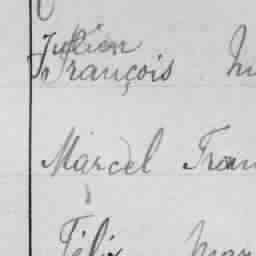 Julien
François
Marcel Fran
Félix Mar